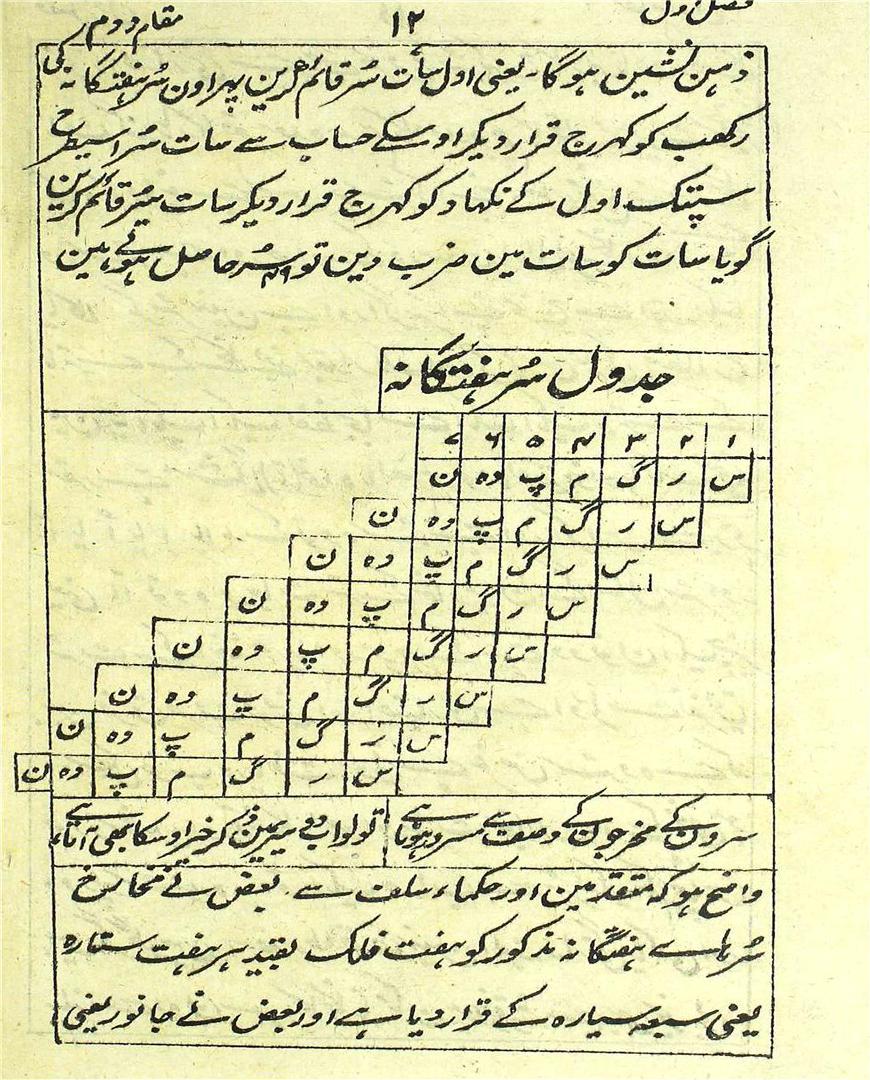 فصل اول ۱۲ مقام دوم
ذہن نشین ہوگا۔ یعنی اول سات سُر قائم کرین پہر اون سُر ہفتگانہ کی
رکھب کو کہرج قرار دیکر اوسکے حساب سے سات سُر اسیطرح
سپتک اول کے نکہاد کو کہرج قرار دیکر سات سُر قائم کرین
گویا سات کو سات مین ضرب دین تو ۴۹ سُر حاصل ہوئے ہین
جدول سُر ہفتگانہ
۱ ۲ ۳ ۴ ۵ ۶ ۷
س ر گ م پ دہ ن
س ر گ م پ دہ ن
س ر گ م پ دہ ن
س ر گ م پ دہ ن
س ر گ م پ دہ ن
س ر گ م پ دہ ن
س ر گ م پ دہ ن
س ر گ م پ دہ ن
سرون کے مخرجون کے وصف سے سرود ہوتا ہے
تو لواب دوسرے مین ذکر خیر اوسکا بھی آتا ہے
واضح ہو کہ متقدمین اور حکماء سلف سے بعض نے مخارج
سُرہاے ہفتگانہ مذکور کو ہفت فلک بقید ہر ہفت ستارہ
یعنی سبعہ سیارہ کے قرار دیا ہے اور بعض نے جانور یعنی